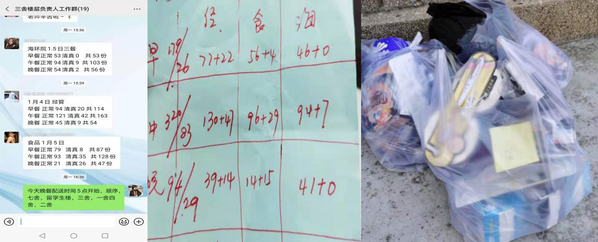 三舍楼层负责人工作群(19)
海环院 1.5日三餐
早餐正常 53清真0 共 53份
午餐正常 94 清真 9 共 103份
晚餐正常 54清真 2 共 56份
1月4日.经管
早餐 正常 94 清真 20 共 114
午餐 正常 121 清真 42 共 163
晚餐 正常 45 清真 9 共 54
食品1月5日
早餐正常 79 清真 8 共87份
午餐正常 93 清真 35 共 128份
晚餐正常 21 清真 26 共 47份
今天晚餐配送时间5点开始，顺序，
七舍，留学生楼，三舍，一舍四
舍，二舍
经 食 海
早 26 77+22 56+4 46+0
320/83 130+47 96+29 94+7
晚 94/29 39+14 14+15 41+0